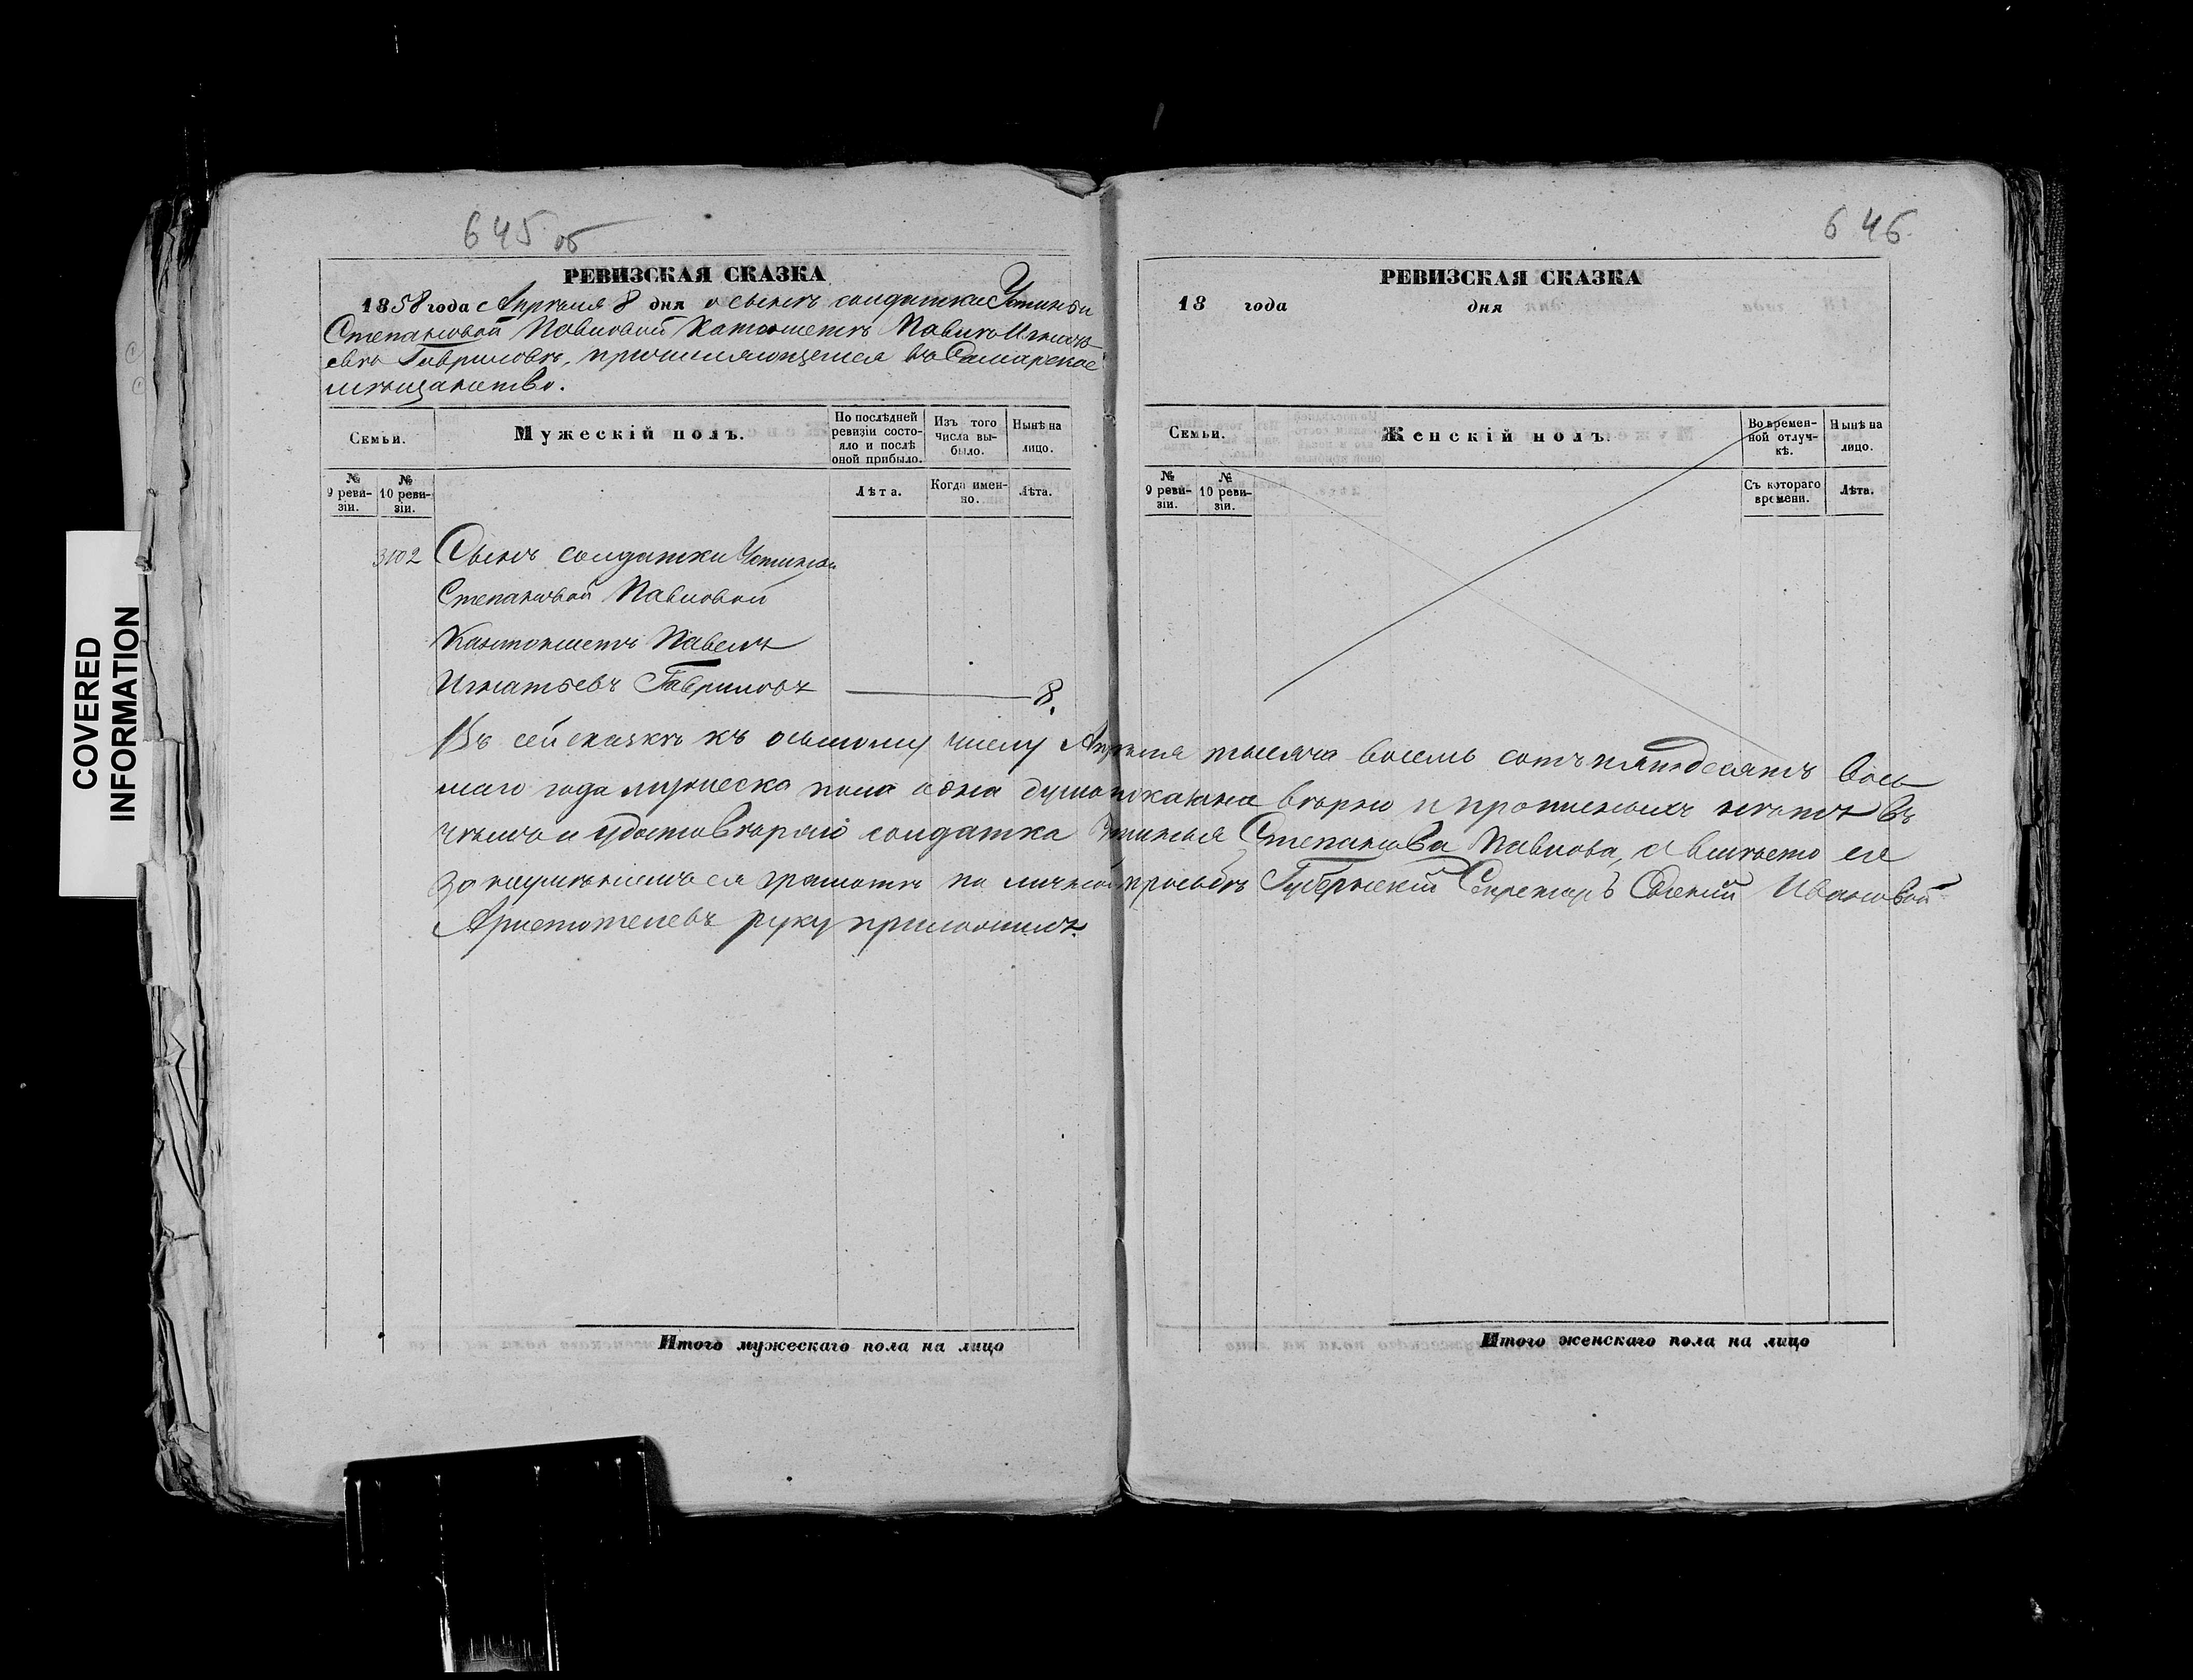 645 об
РЕВИЗСКАЯ СКАЗКА
1858 года Апреля 8 дня о сынѣ солдатки Устиньи
Степановой Павловой Кантонистѣ Павлѣ Игнать-
евѣ Гавриловѣ, причисляющемся въ Самарское
мѣщанство.
Семьи.
Мужескій полъ.
По послѣдней ревизіи состо-
яло и послѣ оной прибыло.
Изъ того числа вы-
было.
Нынѣ на лицо.
№ 9 реви-
зіи.
№ 10 реви-
зіи.
Лѣта.
Когда имен-
но.
Лѣта.
3102 Сынъ солдатки Устиньи
Степановой Павловой
Кантонистъ Павелъ
Игнатьевъ Гавриловъ 8.
Въ сей сказкѣ къ осьмому числу Апрѣля тысяча восемь сотъ пятьдесятъ вось
маго года мужеска пола одна душа показана вѣрно и прописныхъ нѣтъ въ
чемъ и удостовѣряю солдатка Устинья Степанова Павлова, а вмѣсто ее
за неумѣніемъ ея грамотѣ по личной просьбѣ Губернскій Секретарь Евгеній Ивановъ
Аристотелевъ руку приложилъ.
Итого мужескаго пола на лицо
646
РЕВИЗСКАЯ СКАЗКА
18 года дня
Семьи.
Женскій полъ.
Во времен-
ной отлуч-
кѣ.
Нынѣ на лицо.
№ 9 реви-
зіи.
№ 10 реви-
зіи.
Съ котораго времени.
Лѣта.
Итого женскаго пола на лицо
COVERED
INFORMATION